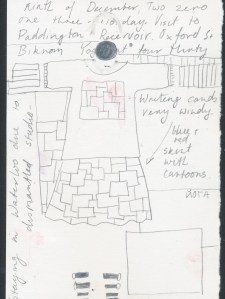 Ninth of December Two zero
one three - 10 day Visit to
Paddington Reservoir. Oxford St
tour
Writing cards
very windy.
blue &
red
skirt
with
cartoons
staying in Waterloo due to
dismantled studio-